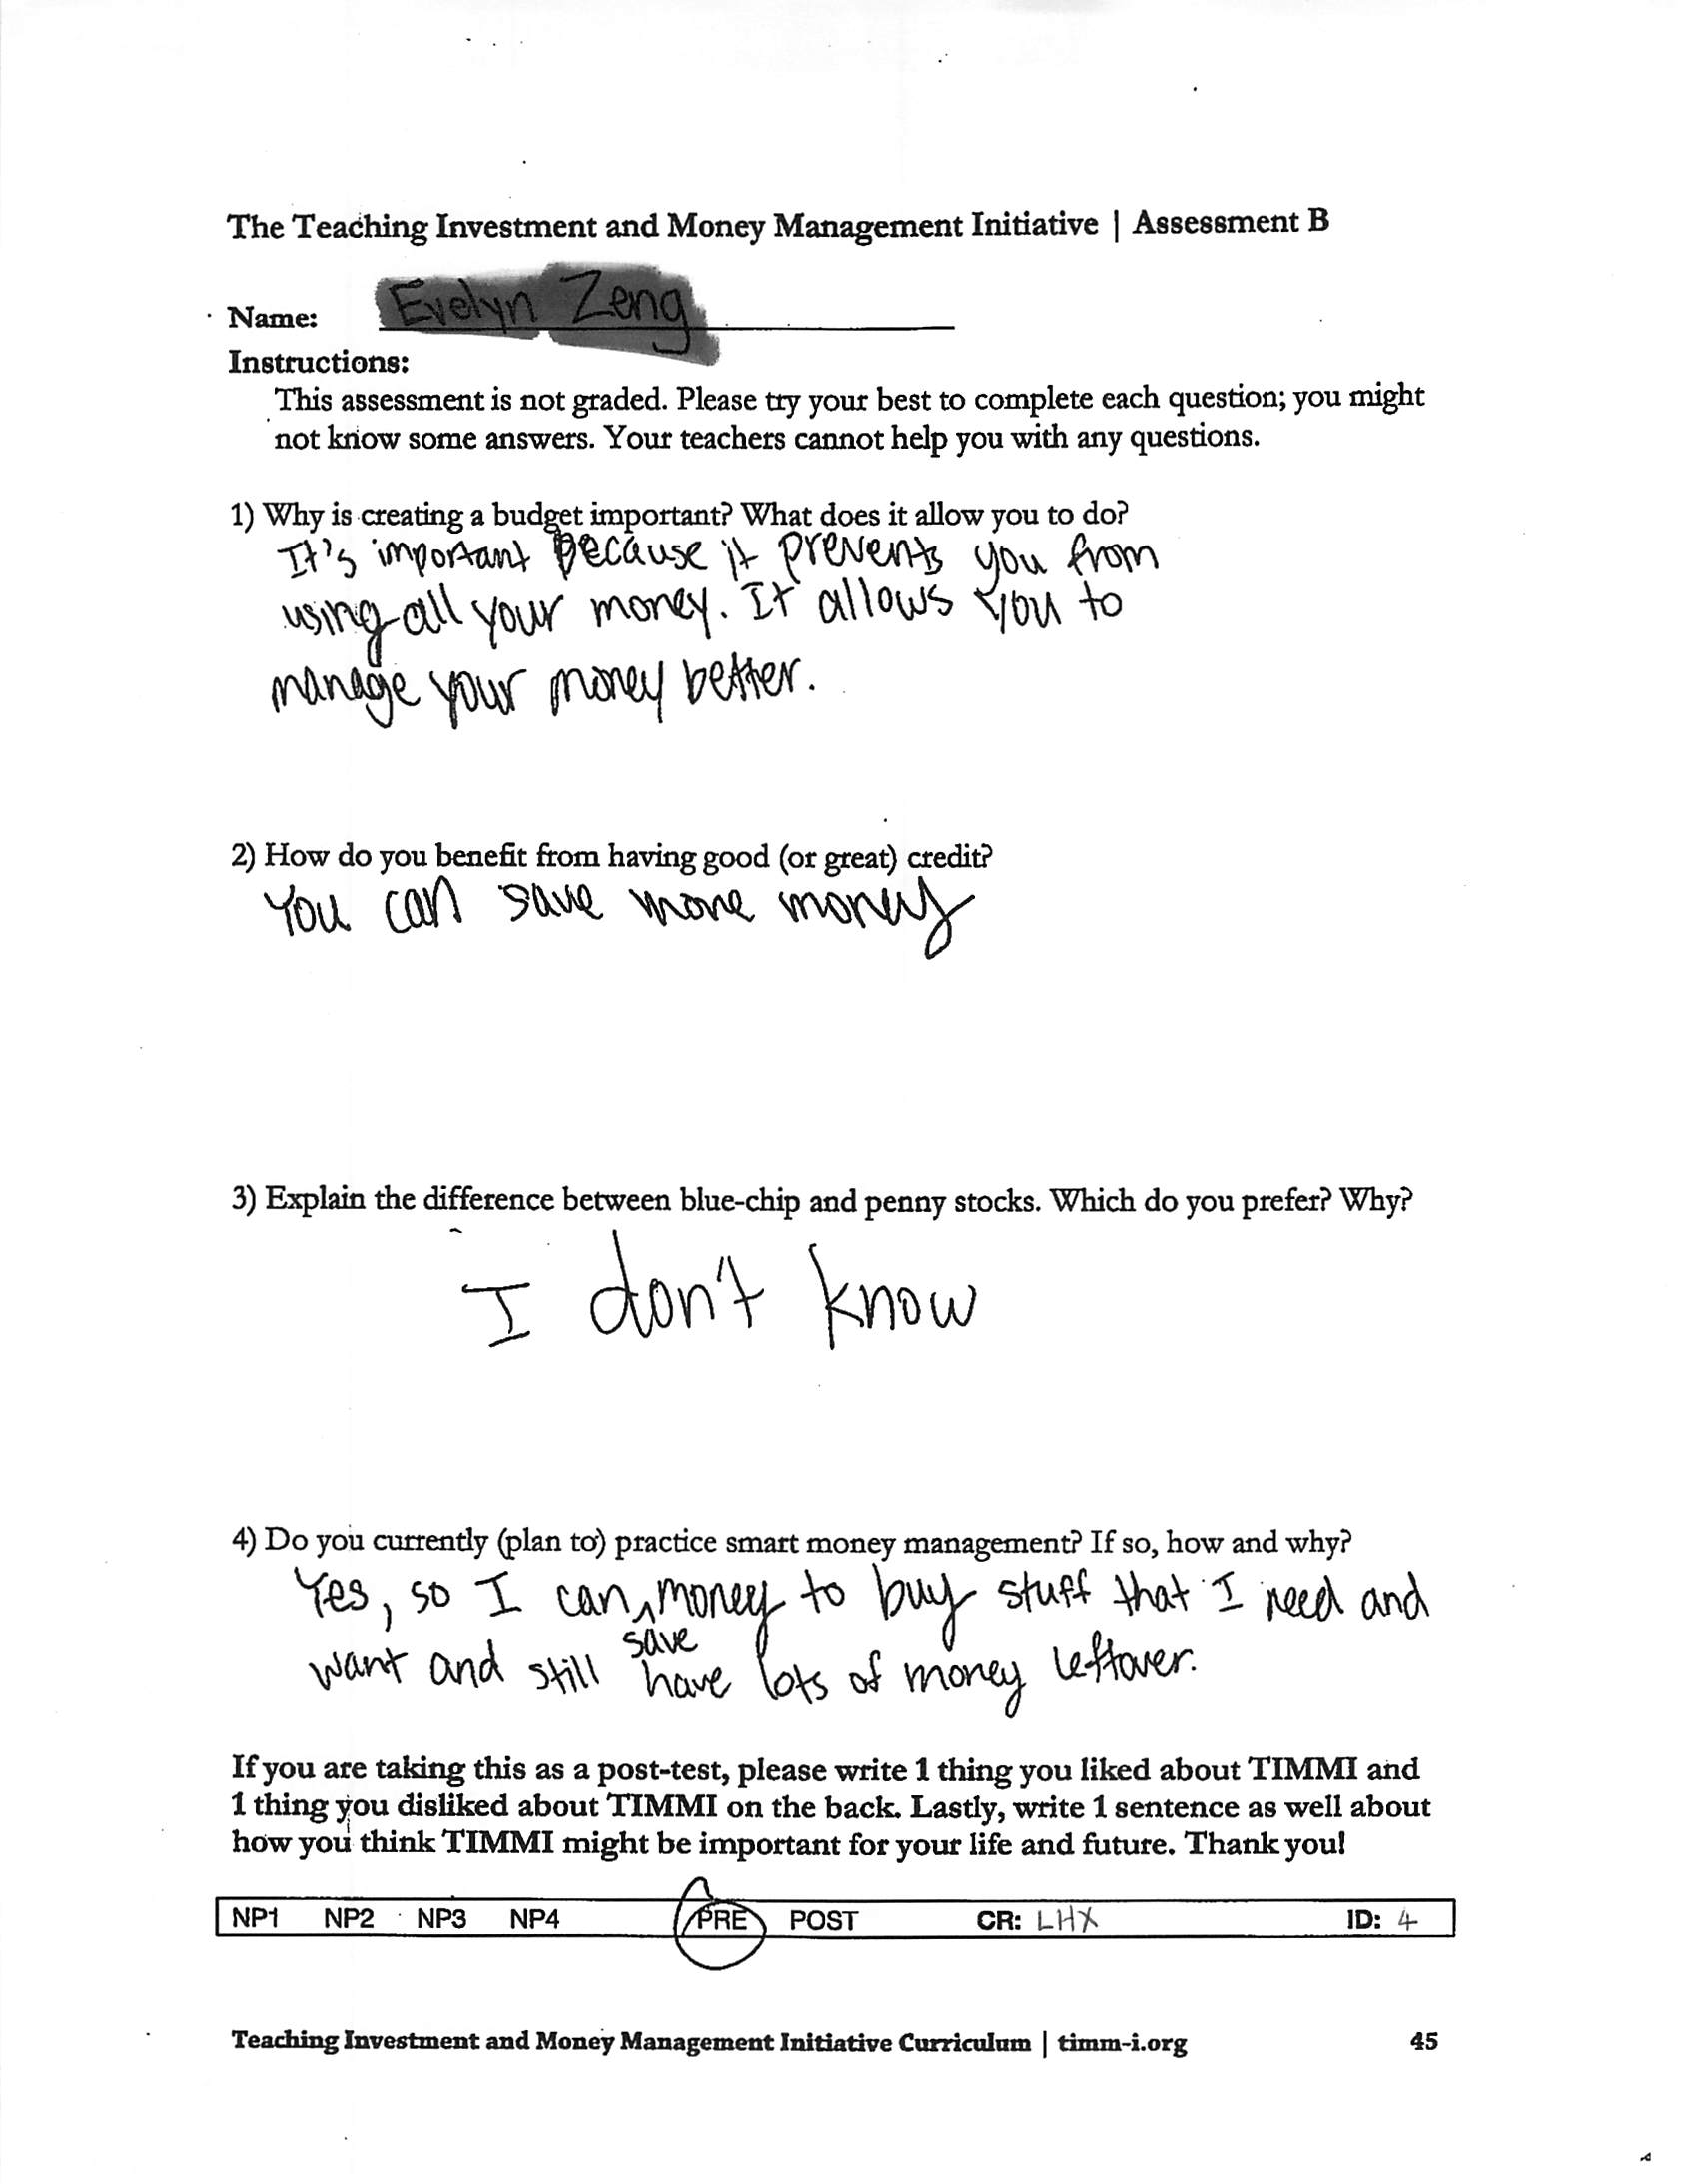 The Teaching Investment and Money Management Initiative | Assessment B
Name: Evelyn Zeng
Instructions:
This assessment is not graded. Please try your best to complete each question; you might
not know some answers. Your teachers cannot help you with any questions.
1) Why is creating a budget important? What does it allow you to do?
It's important because it prevents you from
using all your money. It allows you to
manage your money better.
2) How do you benefit from having good (or great) credit?
You can save more money
3) Explain the difference between blue-chip and penny stocks. Which do you prefer? Why?
I don't know
4) Do you currently (plan to) practice smart money management? If so, how and why?
Yes, so I can ^ money to buy stuff that I need and
save
want and still have lots of money leftover.
If you are taking this as a post-test, please write 1 thing you liked about TIMMI and
1 thing you disliked about TIMMI on the back. Lastly, write 1 sentence as well about
how you think TIMMI might be important for your life and future. Thank you!
NP1 NP2 NP3 NP4 PRE POST CR: LHX ID: 4
Teaching Investment and Money Management Initiative Curriculum | timm-i.org 45